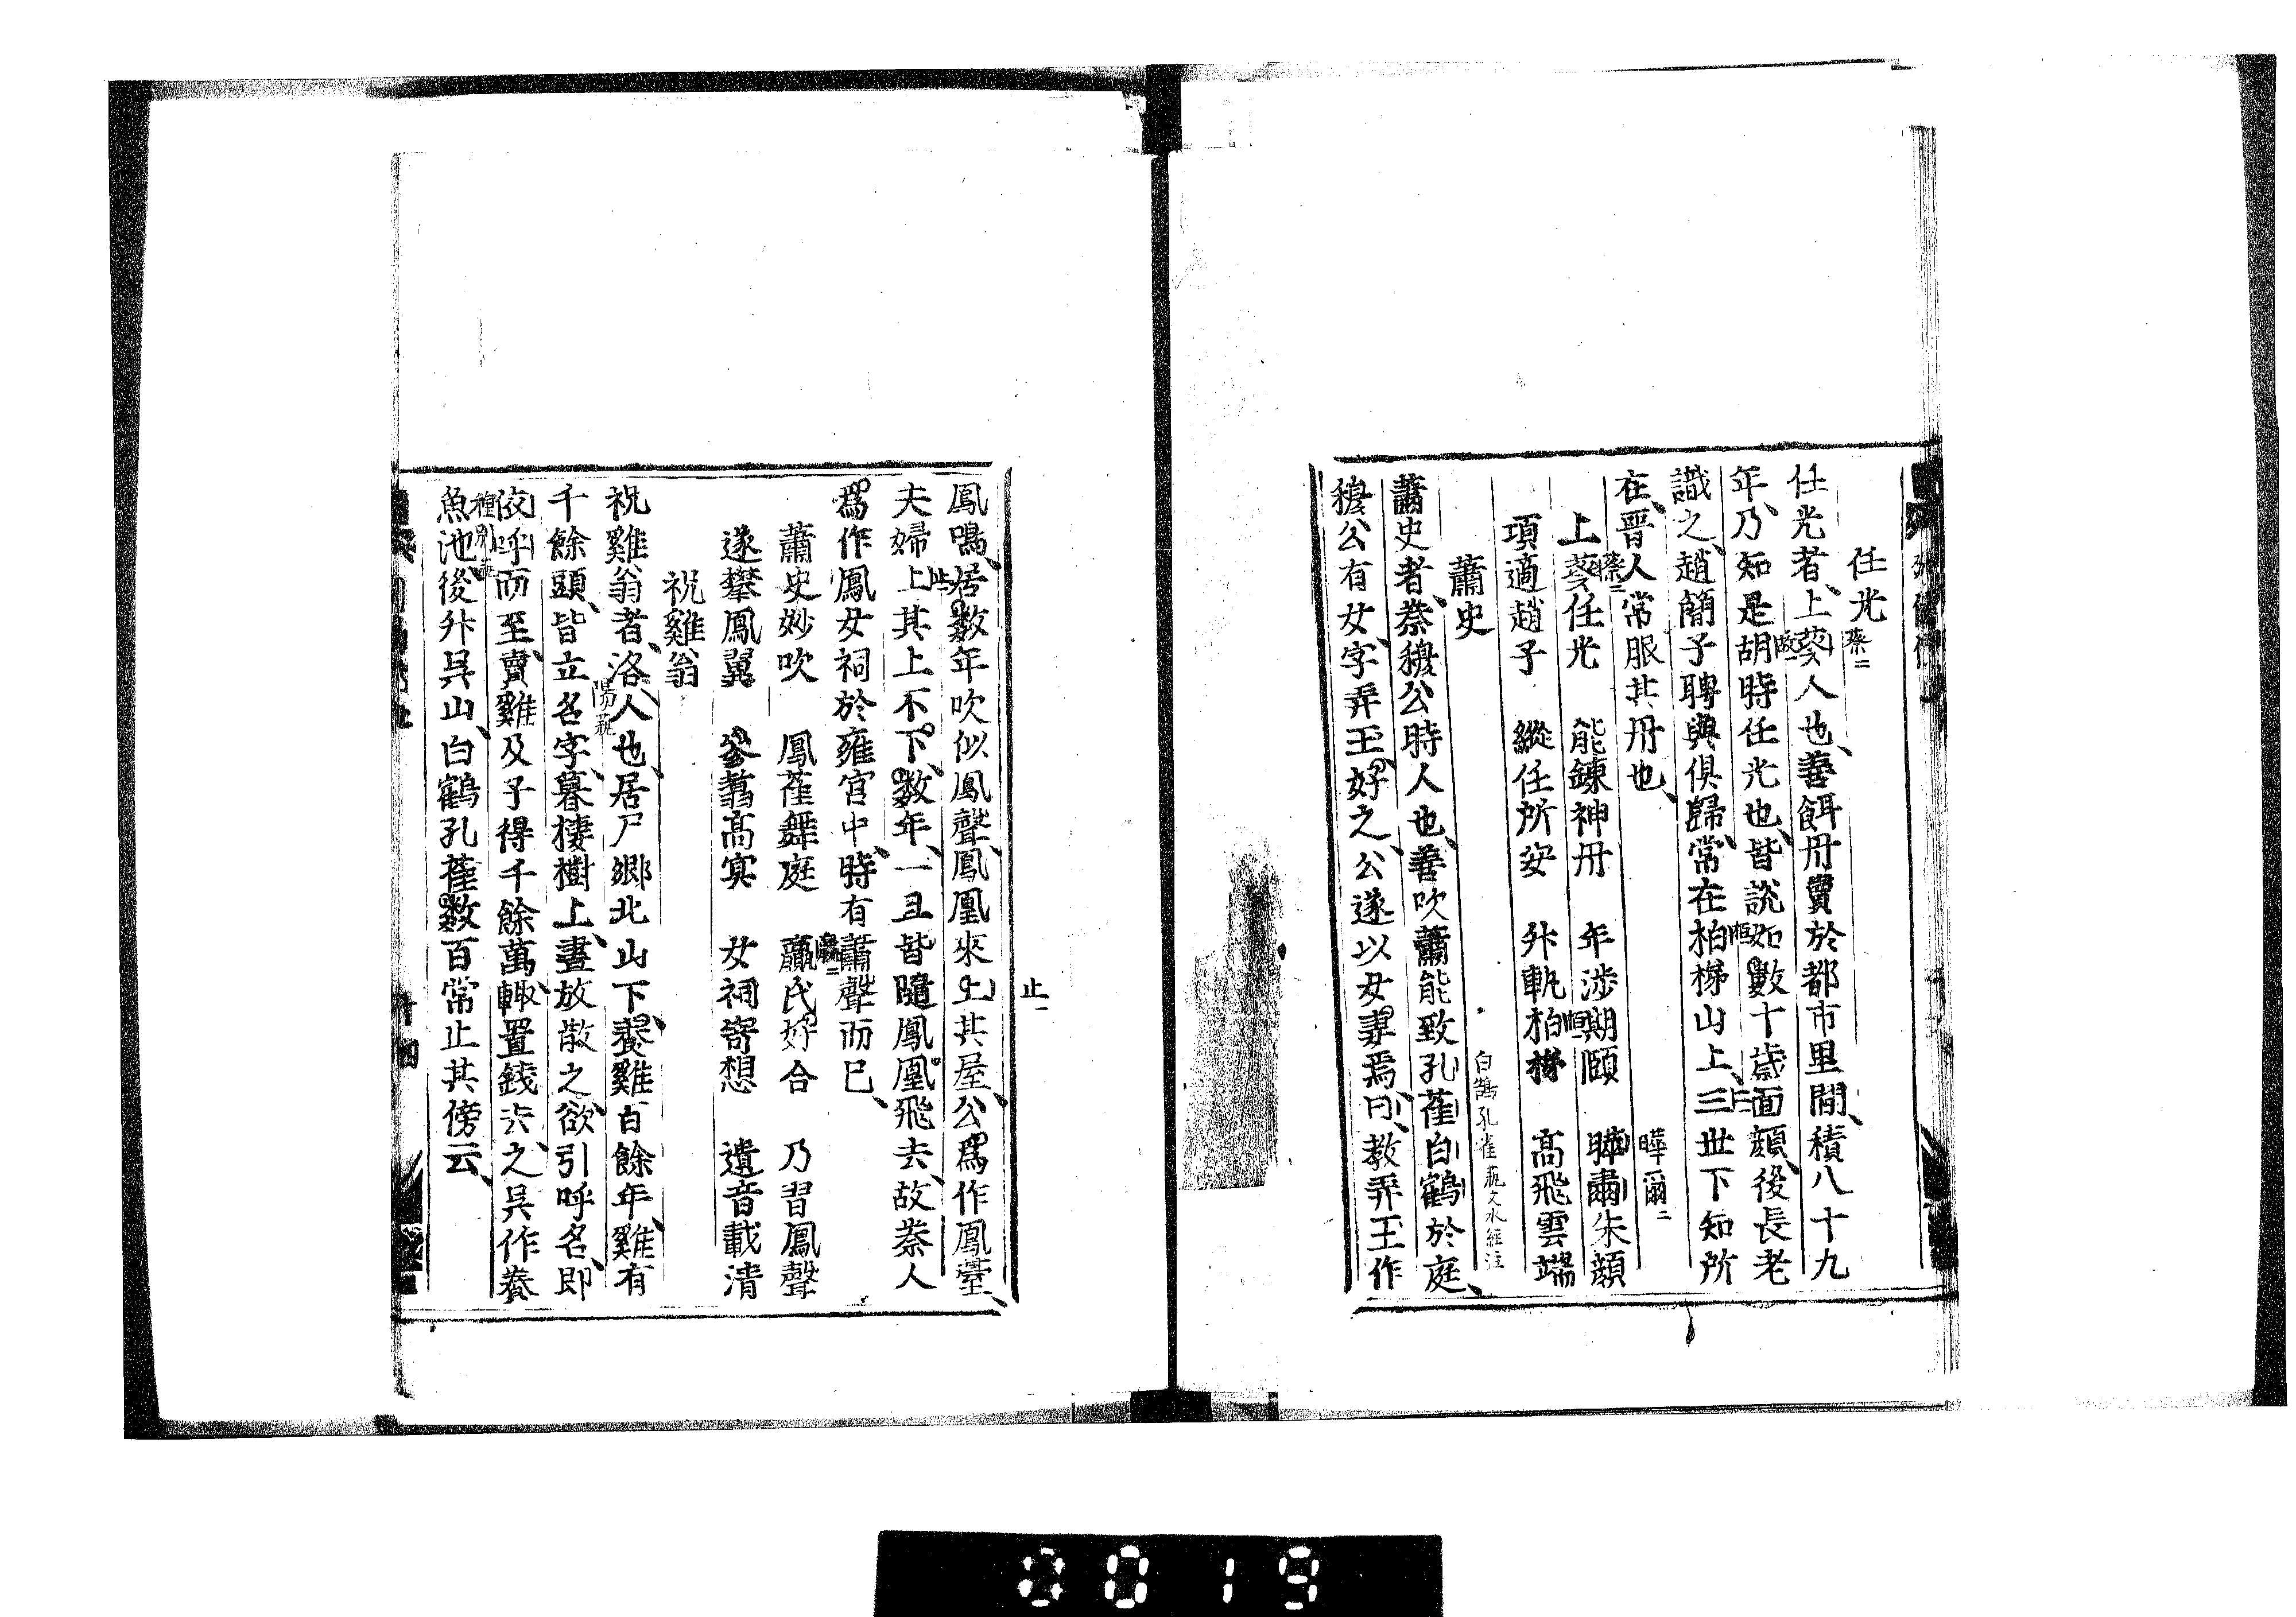 任光
任光者上蔡人也善餌丹賣於都市里間積八十九
年乃知是胡時任光也皆說如數十歲面顏後長老
識之趙簡子聘與俱歸常在柏梯山上三世下知所
在晉人常服其丹也
上蔡任光 能鍊神丹 年涉期頤 曄爾朱顏
項適趙子 縱任所安 升軌柏梯 高飛雲端
蕭史
白鵠孔雀 藝文水經注
蕭史者秦穆公時人也善吹蕭能致孔雀白鶴於庭
穆公有女字弄玉好之公遂以女妻焉日教弄玉作
止一
鳳鳴居數年吹似鳳聲鳳凰來止其屋公爲作鳳臺
夫婦止其上不下數年一旦皆隨鳳凰飛去故秦人
爲作鳳女祠於雍宮中時有蕭聲而已
蕭史妙吹 鳳雀舞庭 嬴氏好合 乃習鳳聲
遂攀鳳翼 參翥高冥 女祠寄想 遺音載清
祝雞翁
祝雞翁者洛人也居尸鄉北山下養雞百餘年雞有
千餘頭皆立名字暮棲樹上晝放散之欲引呼名即
依呼而至賣雞及子得千餘萬輙置錢去之吳作養
魚池後升吳山白鶴孔雀數百常止其傍云
0019